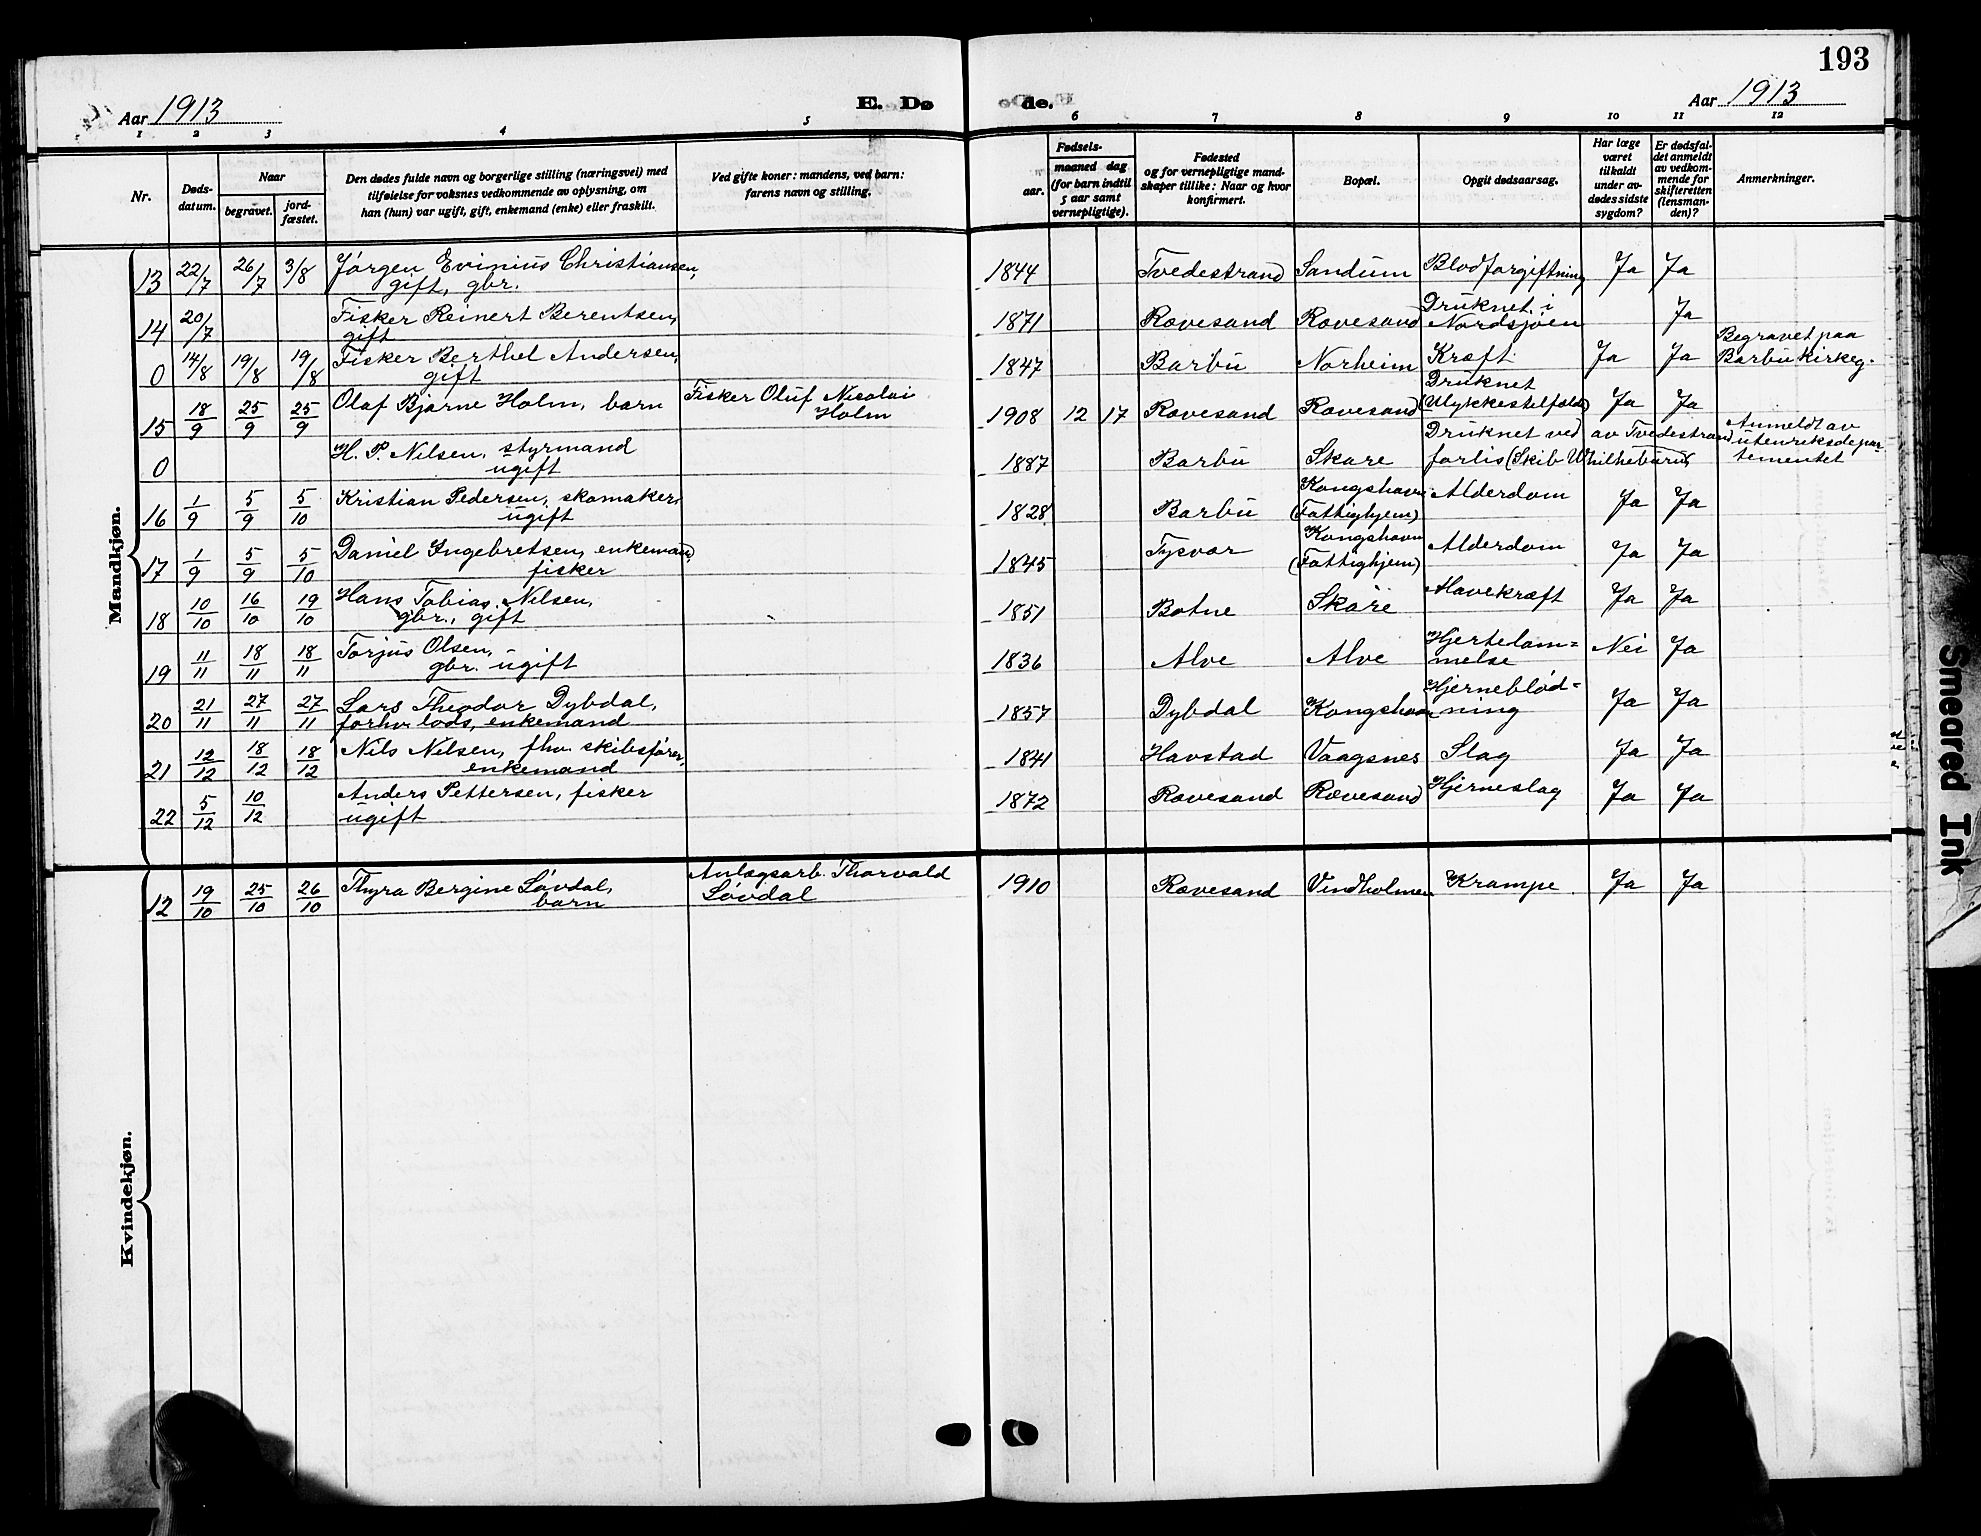 193
Aar 1913 E. Døde. Aar 1913
1 2 3 4 5 6 7 8 9 10 11 12
Nr.
Døds-
datum.
Naar
begravet.
jord-
fæstet.
Den dødes fulde navn og borgerlige stilling (næringsvei) med
tilføielse for voksnes vedkommende av oplysning, om
han (hun) var ugift, gift, enkemand (enke) eller fraskilt.
Ved gifte koner: mandens, ved barn:
farens navn og stilling.
Fødsels-
aar.
maaned dag
(for barn indtil
5 aar samt
vernepligtige).
Fødested
og for vernepligtige mand-
skaper tillike: Naar og hvor
konfirmert.
Bopæl.
Opgit dødsaarsag.
Har læge
været
tilkaldt
under av-
dødes sidste
sygdom?
Er dødsfal-
det anmeldt
av vedkom-
mende for
skifteretten
(lensman-
den)?
Anmerkninger.
Mandkjøn.
13 22/7 26/7 3/8 Jørgen Evinius Christiansen, 1844 Tvedestrand Sandum Blodforgiftning Ja Ja
gift, gbr.
14 20/7 Fisker Reinert Berentsen, 1871 Rævesand Rævesand Druknet i Ja
gift Nordsjøen
0 14/8 19/8 19/8 Fisker Berthel Andersen, 1847 Barbu Norheim Kræft. Ja Ja Begravet paa
gift Barbu kirkeg.
15 18/9 25/9 25/9 Olaf Bjarne Holm, barn Fisker Oluf Nicolai 1908 12 17 Rævesand Rævesand Druknet Ja Ja
Holm (Ulykkestilfælde)
0 H. P. Nilsen, styrmand 1887 Barbu Skare Druknet ved av Tvedestrand Anmeldt av
ugift forlis (Skib Whilheburn) utenriksdepar-
tementet
16 1/9 5/9 5/10 Kristian Pedersen, skomaker, 1828 Barbu Kongshavn Alderdom Ja Ja
ugift (Fattighjem)
17 1/9 5/9 5/10 Daniel Ingebretsen, enkemand, 1845 Tysvær Kongshavn Alderdom Ja Ja
fisker (Fattighjem)
18 10/10 16/10 19/10 Hans Tobias Nilsen, 1851 Botne Skare Mavekræft Ja Ja
gbr., gift
19 11/11 18/11 18/11 Torjus Olsen, 1836 Alve Alve Hjertelam= Nei Ja
gbr. ugift melse
20 21/11 27/11 27/11 Lars Theodor Dybdal, 1857 Dybdal Kongshavn Hjerneblød= Ja Ja
forhv. lods, enkemand ning
21 12/12 18/12 18/12 Nils Nilsen, fhv. skibsfører, 1841 Havstad Vaagsnes Slag Ja Ja
enkemand
22 5/12 10/12 Anders Pettersen, fisker 1872 Rævesand Rævesand Hjerneslag Ja Ja
ugift
Kvindekjøn.
12 19/10 25/10 26/10 Thyra Bergine Løvdal, Anlægsarb. Thorvald 1910 Rævesand Vindholmen Krampe. Ja Ja
barn Løvdal
Smeared Ink